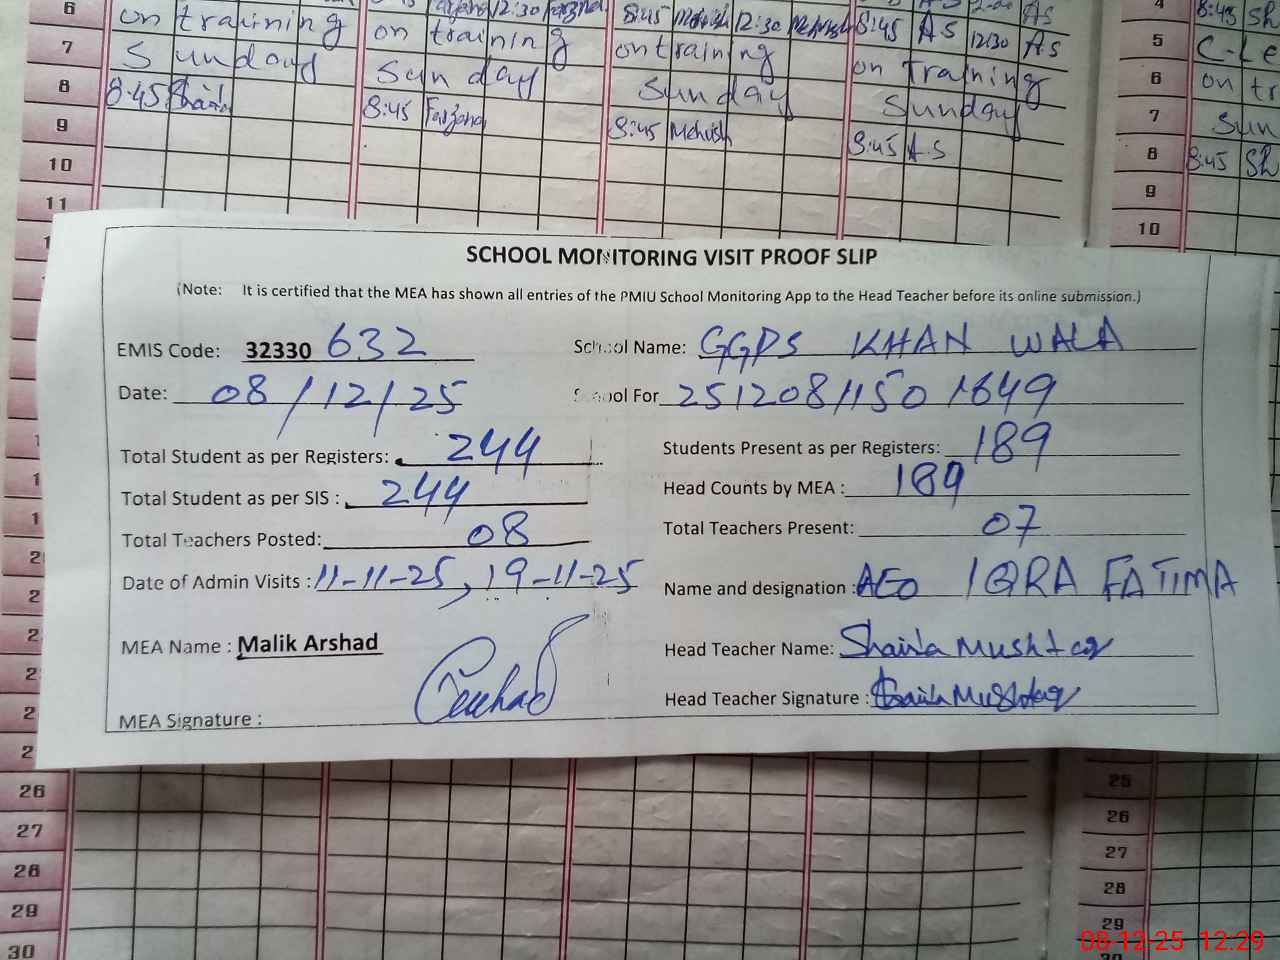 6 on training on training 8:45 Mehvish 12:30 Mehvish 8:45 AS 12:30 AS
7 Sunday Sunday on training on Training
8 8:45 8:45 Farzana Sunday Sunday
9 8:45 Mehvish 8:45 A.S
10
11
4 8:45 Sh
5 C-Le
6 on tr
7 Sun
8 8:45 Sh
9
10
SCHOOL MONITORING VISIT PROOF SLIP
(Note: It is certified that the MEA has shown all entries of the PMIU School Monitoring App to the Head Teacher before its online submission.)
EMIS Code: 32330 632 School Name: GGPS KHAN WALA
Date: 08/12/25 School For 2512081150 1649
Total Student as per Registers: 244 Students Present as per Registers: 189
Total Student as per SIS : 244 Head Counts by MEA : 189
Total Teachers Posted: 08 Total Teachers Present: 07
Date of Admin Visits : 11-11-25, 19-11-25 Name and designation : AEO IQRA FATIMA
MEA Name : Malik Arshad Head Teacher Name: Shaila Mushtaq
MEA Signature : Head Teacher Signature : Shaila Mushtaq
26 25
27 26
28 27
29 28
30 29
30
08-12-25 12:29